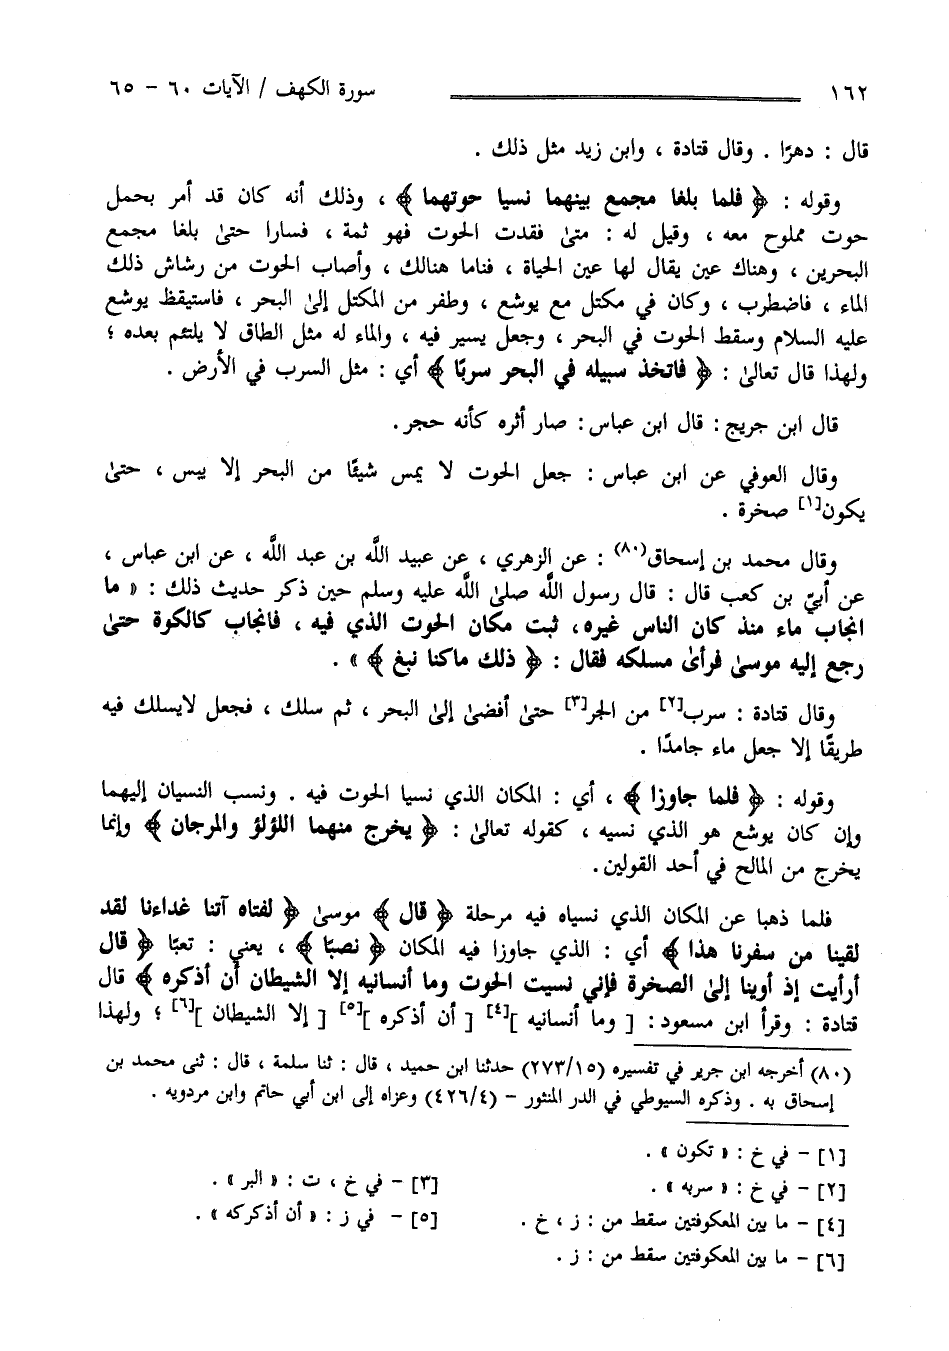 ١٦٢ سورة الكهف / الآيات ٦٠ - ٦٥
قال : دهرًا . وقال قتادة ، وابن زيد مثل ذلك .
وقوله : ﴿ فلما بلغا مجمع بينهما نسيا حوتهما ﴾ ، وذلك أنه كان قد أمر بحمل
حوت مملوح معه ، وقيل له : متىٰ فقدت الحوت فهو ثمة ، فسارا حتىٰ بلغا مجمع
البحرين ، وهناك عين يقال لها عين الحياة ، فناما هنالك ، وأصاب الحوت من رشاش ذلك
الماء ، فاضطرب ، وكان في مكتل مع يوشع ، وطفر من المكتل إلىٰ البحر ، فاستيقظ يوشع
عليه السلام وسقط الحوت في البحر ، وجعل يسير فيه ، والماء له مثل الطاق لا يلتئم بعده ؛
ولهذا قال تعالىٰ : ﴿ فاتخذ سبيله في البحر سربًا ﴾ أي : مثل السرب في الأرض .
قال ابن جريج : قال ابن عباس : صار أثره كأنه حجر .
وقال العوفي عن ابن عباس : جعل الحوت لا يمس شيئًا من البحر إلا يبس ، حتىٰ
يكون[١] صخرة .
وقال محمد بن إسحاق(٨٠) : عن الزهري ، عن عبيد اللَّه بن عبد اللَّه ، عن ابن عباس ،
عن أبيّ بن كعب قال : قال رسول اللَّه صلىٰ اللَّه عليه وسلم حين ذكر حديث ذلك : « ما
انجاب ماء منذ كان الناس غيره، ثبت مكان الحوت الذي فيه ، فانجاب كالكوة حتىٰ
رجع إليه موسىٰ فرأىٰ مسلكه فقال : ﴿ ذلك ماكنا نبغ ﴾ » .
وقال قتادة : سرب[٢] من الجر[٣] حتىٰ أفضىٰ إلىٰ البحر ، ثم سلك ، فجعل لايسلك فيه
طريقًا إلا جعل ماء جامدًا .
وقوله : ﴿ فلما جاوزا ﴾ ، أي : المكان الذي نسيا الحوت فيه . ونسب النسيان إليهما
وإن كان يوشع هو الذي نسيه ، كقوله تعالىٰ : ﴿ يخرج منهما اللؤلؤ والمرجان ﴾ وإنما
يخرج من المالح في أحد القولين .
فلما ذهبا عن المكان الذي نسياه فيه مرحلة ﴿ قال ﴾ موسىٰ ﴿ لفتاه آتنا غداءنا لقد
لقينا من سفرنا هذا ﴾ أي : الذي جاوزا فيه المكان ﴿ نصبًا ﴾ ، يعني : تعبًا ﴿ قال
أرأيت إذ أوينا إلىٰ الصخرة فإني نسيت الحوت وما أنسانيه إلا الشيطان أن أذكره ﴾ قال
قتادة : وقرأ ابن مسعود : [ وما أنسانيه ][٤] [ أن أذكره ][٥] [ إلا الشيطان ][٦] ؛ ولهذا
(٨٠) أخرجه ابن جرير في تفسيره (٢٧٣/١٥) حدثنا ابن حميد ، قال : ثنا سلمة ، قال : ثنى محمد بن
إسحاق به . وذكره السيوطي في الدر المنثور - (٤٢٦/٤) وعزاه إلى ابن أبي حاتم وابن مردويه .
[١] - في خ : « تكون » .
[٢] - في خ : « سربه » . [٣] - في خ ، ت : « البر » .
[٤] - ما بين المعكوفتين سقط من : ز ، خ . [٥] - في ز : « أن أذكركه » .
[٦] - ما بين المعكوفتين سقط من : ز .